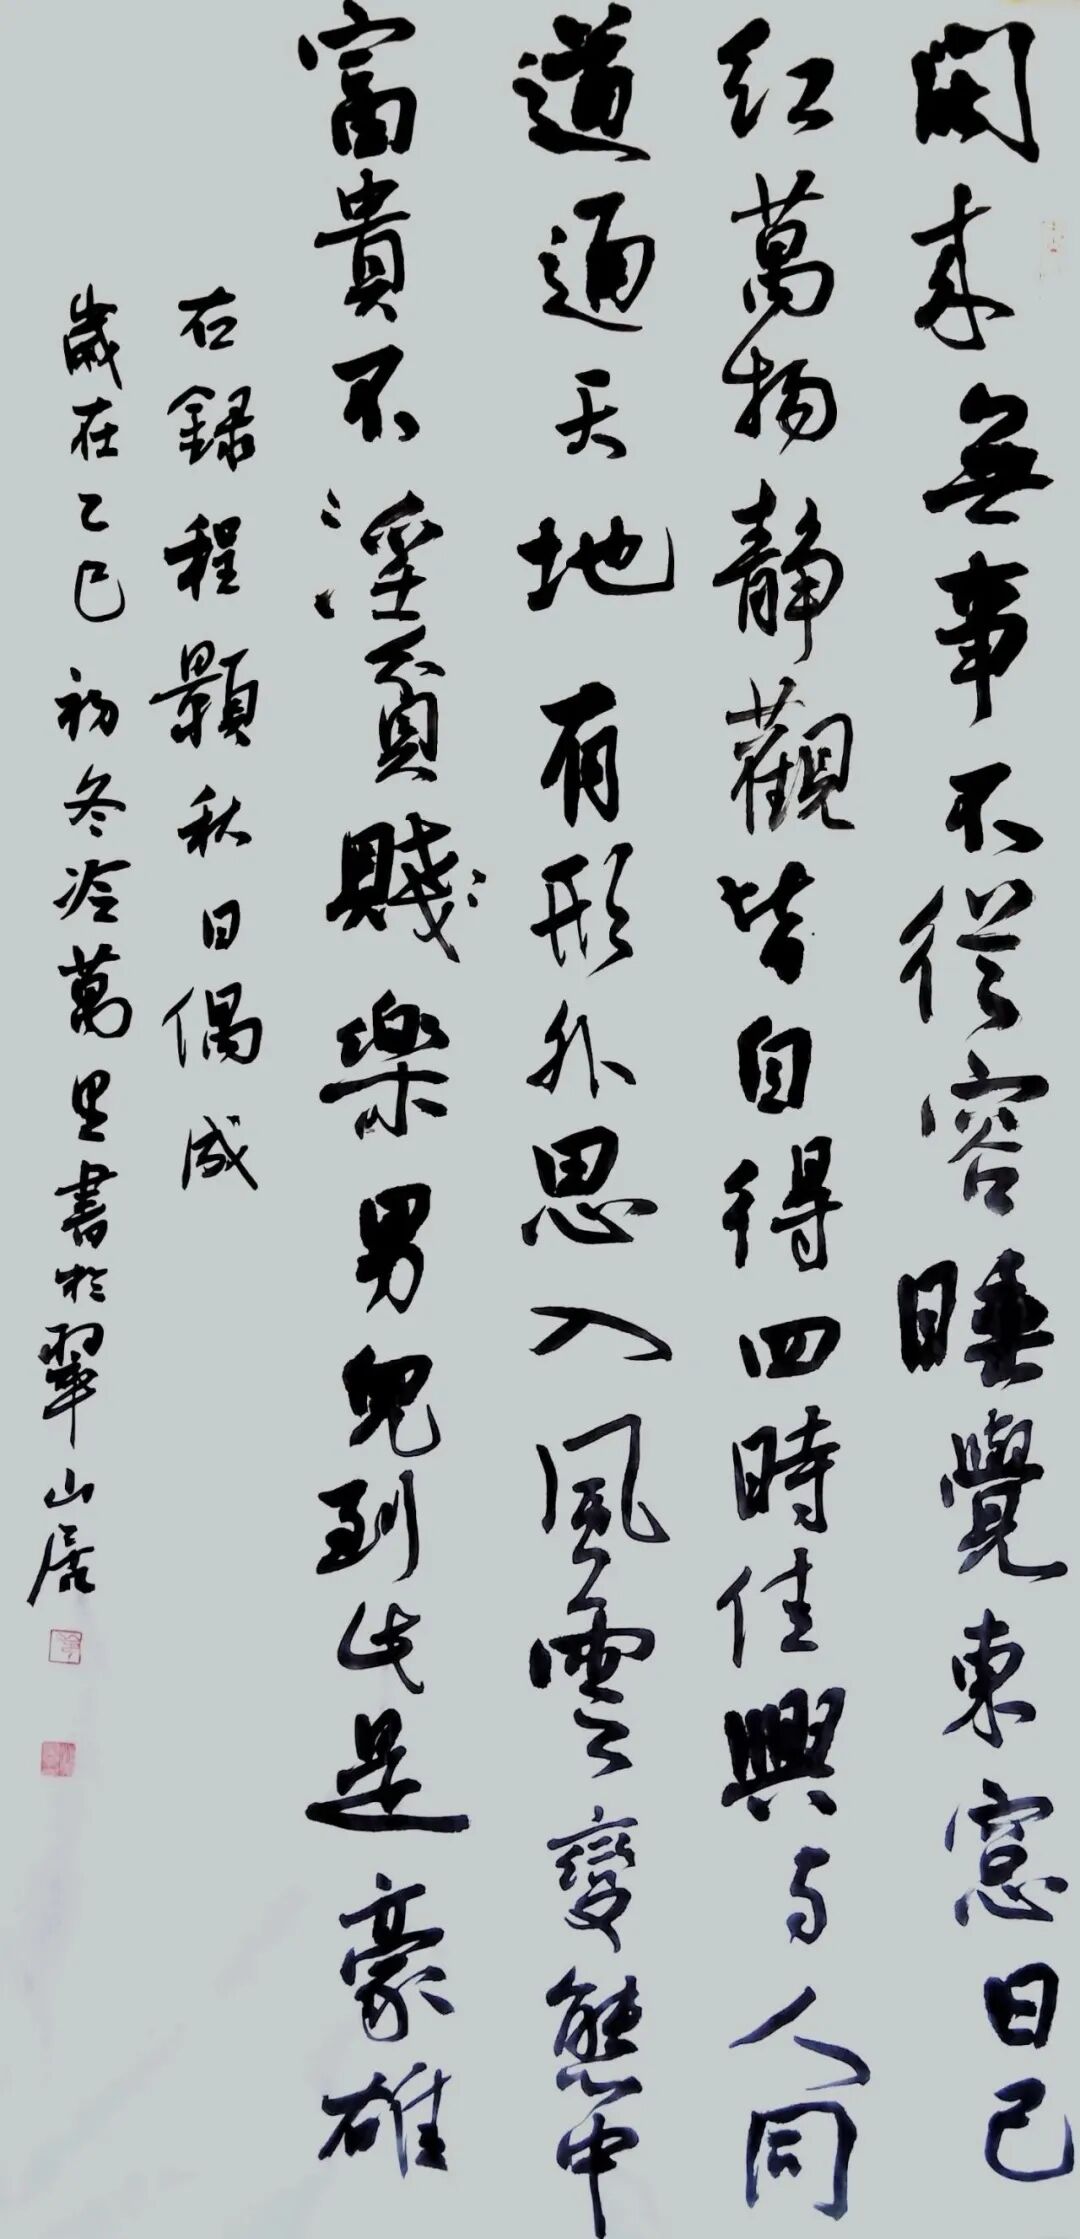 閑来無事不從容睡覺東窓日已
紅萬物静觀皆自得四時佳興与人同
道通天地有形外思入風雲變態中
富貴不淫貧賤樂男兒到此是豪雄
右録程顥秋日偶成
歲在乙巳初冬冷萬里書於翠山居